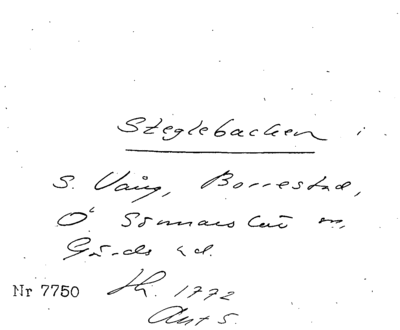 Steglebacken i
S. Vång, Borrestad,
Ö Sönnarslöv sn,
Gärds hd.
Nr 7750 Lh. 1772
Akt 5.